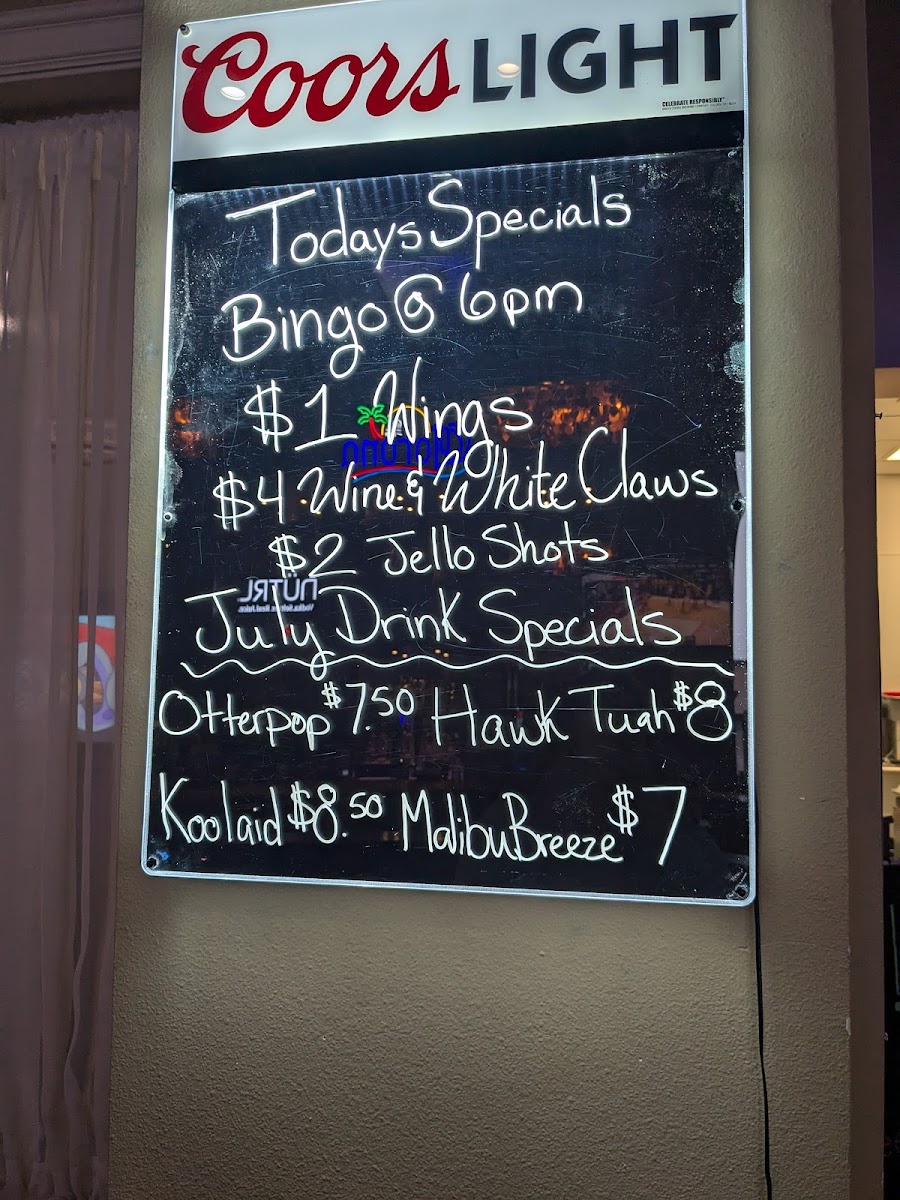 Coors LIGHT
CELEBRATE RESPONSIBLY
Todays Specials
Bingo @ 6pm
$1 Wings
$4 Wine & White Claws
$2 Jello Shots
NÜTRL
July Drink Specials
Otterpop $7.50 Hawk Tuah $8
Koolaid $8.50 Malibu Breeze $7